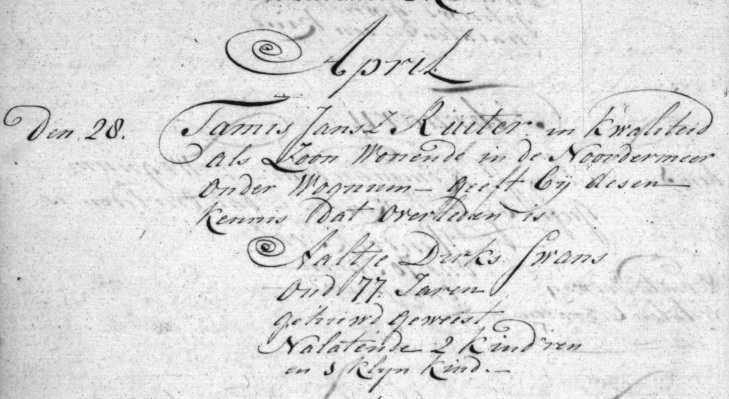 April
Den. 28. Tamis Jansz Ruiter in kwaliteid
als Zoon Wonende in de Noordermeer
onder Wognum — geeft bij desen
kennis dat overleden is
Aaltje Dirks Swans
Oud 77 Jaren
gehuwd geweest
Nalatende 2 kind'ren
en klyn kind. —